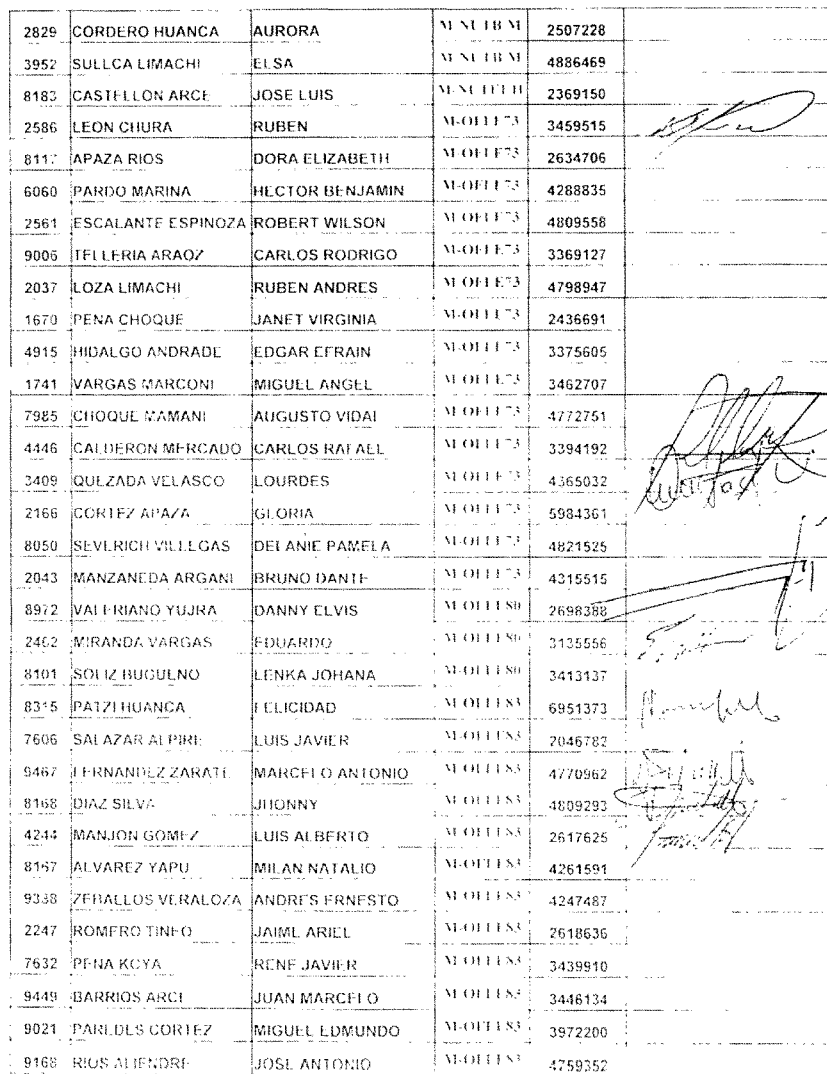 2829 CORDERO HUANCA AURORA 2507228
3952 SULLCA LIMACHI ELSA 4886469
8183 CASTELLON ARCE JOSE LUIS 2369150
2586 LEON CHURA RUBEN M-OFI E73 3459515
APAZA RIOS DORA ELIZABETH M-OFI E73 2634706
6060 PARDO MARINA HECTOR BENJAMIN M-OFI E73 4288835
2561 ESCALANTE ESPINOZA ROBERT WILSON M-OFI E73 4809558
9006 TELLERIA ARAOZ CARLOS RODRIGO M-OFI E73 3369127
2037 LOZA LIMACHI RUBEN ANDRES M-OFI E73 4798947
1670 PENA CHOQUE JANET VIRGINIA M-OFI E73 2436691
4915 HIDALGO ANDRADE EDGAR EFRAIN M-OFI E73 3375605
1741 VARGAS MARCONI MIGUEL ANGEL M-OFI E73 3462707
7985 CHOQUE MAMANI AUGUSTO VIDAL M-OFI E73 4772751
4446 CALDERON MERCADO CARLOS RAFAEL M-OFI E73 3394192
3409 QUEZADA VELASCO LOURDES M-OFI E73 4365032
2166 CORTEZ APAZA GLORIA M-OFI E73 5984361
8050 SEVERICH VILLEGAS DELANIE PAMELA M-OFI E73 4821525
2043 MANZANEDA ARGANI BRUNO DANTE M-OFI E73 4315515
8972 VALERIANO YUJRA DANNY ELVIS M-OFI E80 2698388
2462 MIRANDA VARGAS EDUARDO M-OFI E80 3135556
8101 SOLIZ BUGUENO LENKA JOHANA M-OFI E80 3413137
8315 PATZI HUANCA FELICIDAD M-OFI E83 6951373
7606 SALAZAR ALPIRE LUIS JAVIER M-OFI E83 2046782
9467 FERNANDEZ ZARATE MARCELO ANTONIO M-OFI E83 4770962
8168 DIAZ SILVA JHONNY M-OFI E83 4809293
4244 MANJON GOMEZ LUIS ALBERTO M-OFI E83 2617625
8167 ALVAREZ YAPU MILAN NATALIO M-OFI E83 4261591
9338 ZEBALLOS VERALOZA ANDRES ERNESTO M-OFI E83 4247487
2247 ROMERO TINEO JAIME ARIEL M-OFI E83 2618636
7632 PENA KOYA RENE JAVIER M-OFI E83 3439910
9449 BARRIOS ARCE JUAN MARCELO M-OFI E83 3446134
9021 PAREDES CORTEZ MIGUEL EDMUNDO M-OFI E83 3972200
9168 RIOS ALIENDRE JOSE ANTONIO M-OFI E83 4759352